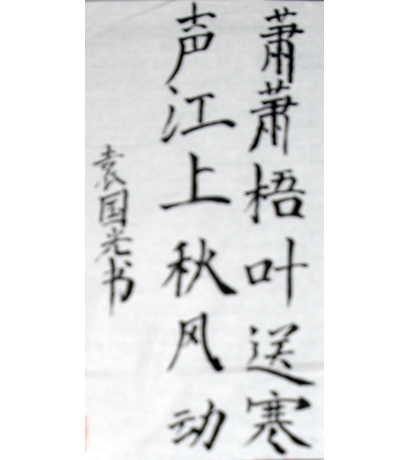 萧萧梧叶送寒
声江上秋风动
袁国光书